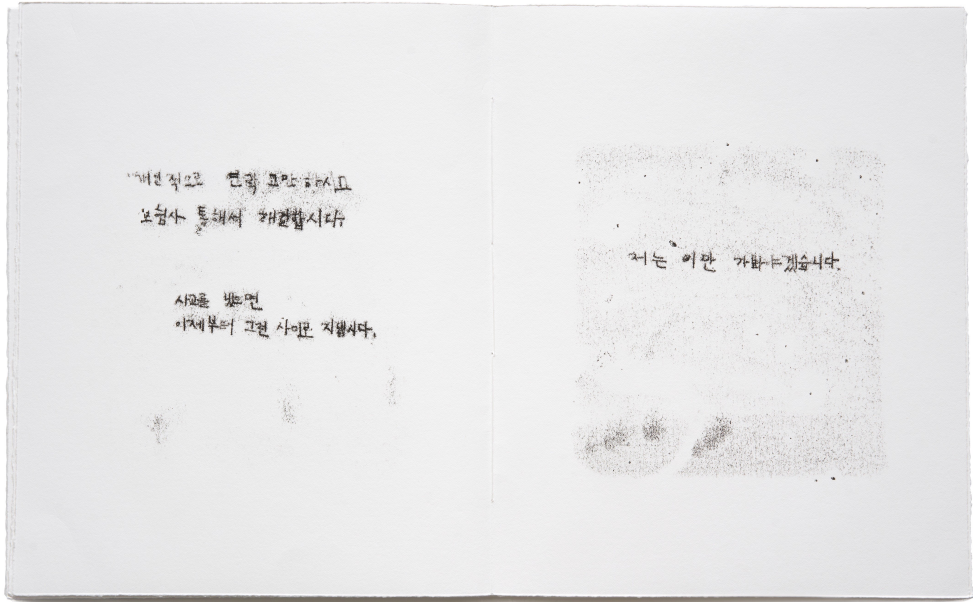 개인적으로 연락 그만 하시고
보험사 통해서 해결합시다.
사고를 냈으면
이제부터 그런 사이로 지냅시다.
저는 이만 가봐야겠습니다.